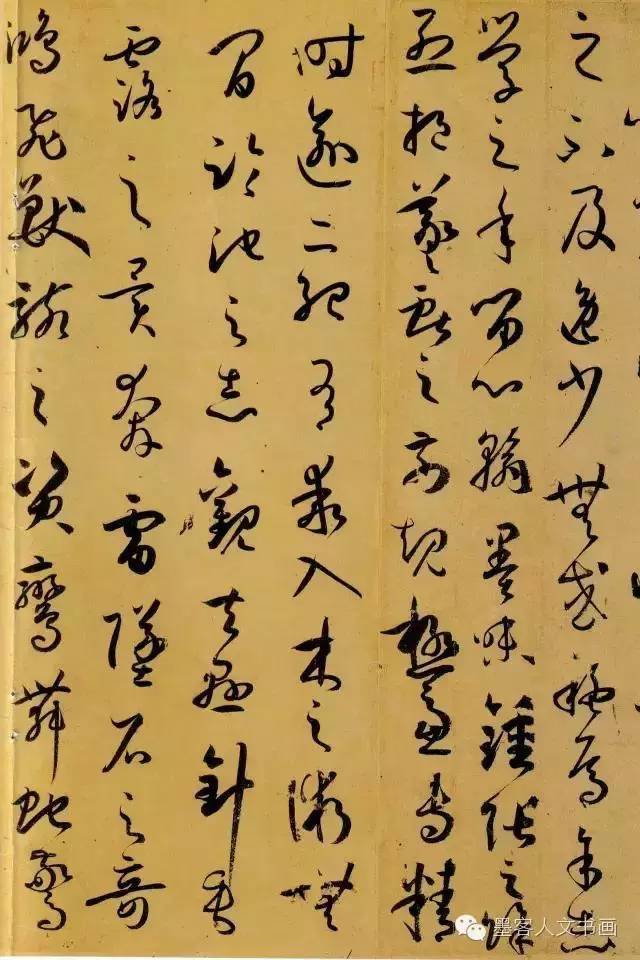 之不及逸少無或疑焉余志
學之年留心翰墨味鍾張之餘
烈挹羲獻之前規極慮專精
時逾二紀有乖入木之術無
間臨池之志觀夫懸針垂
露之異奔雷墜石之奇
鴻飛獸駭之資鸞舞蛇驚
墨客人文书画